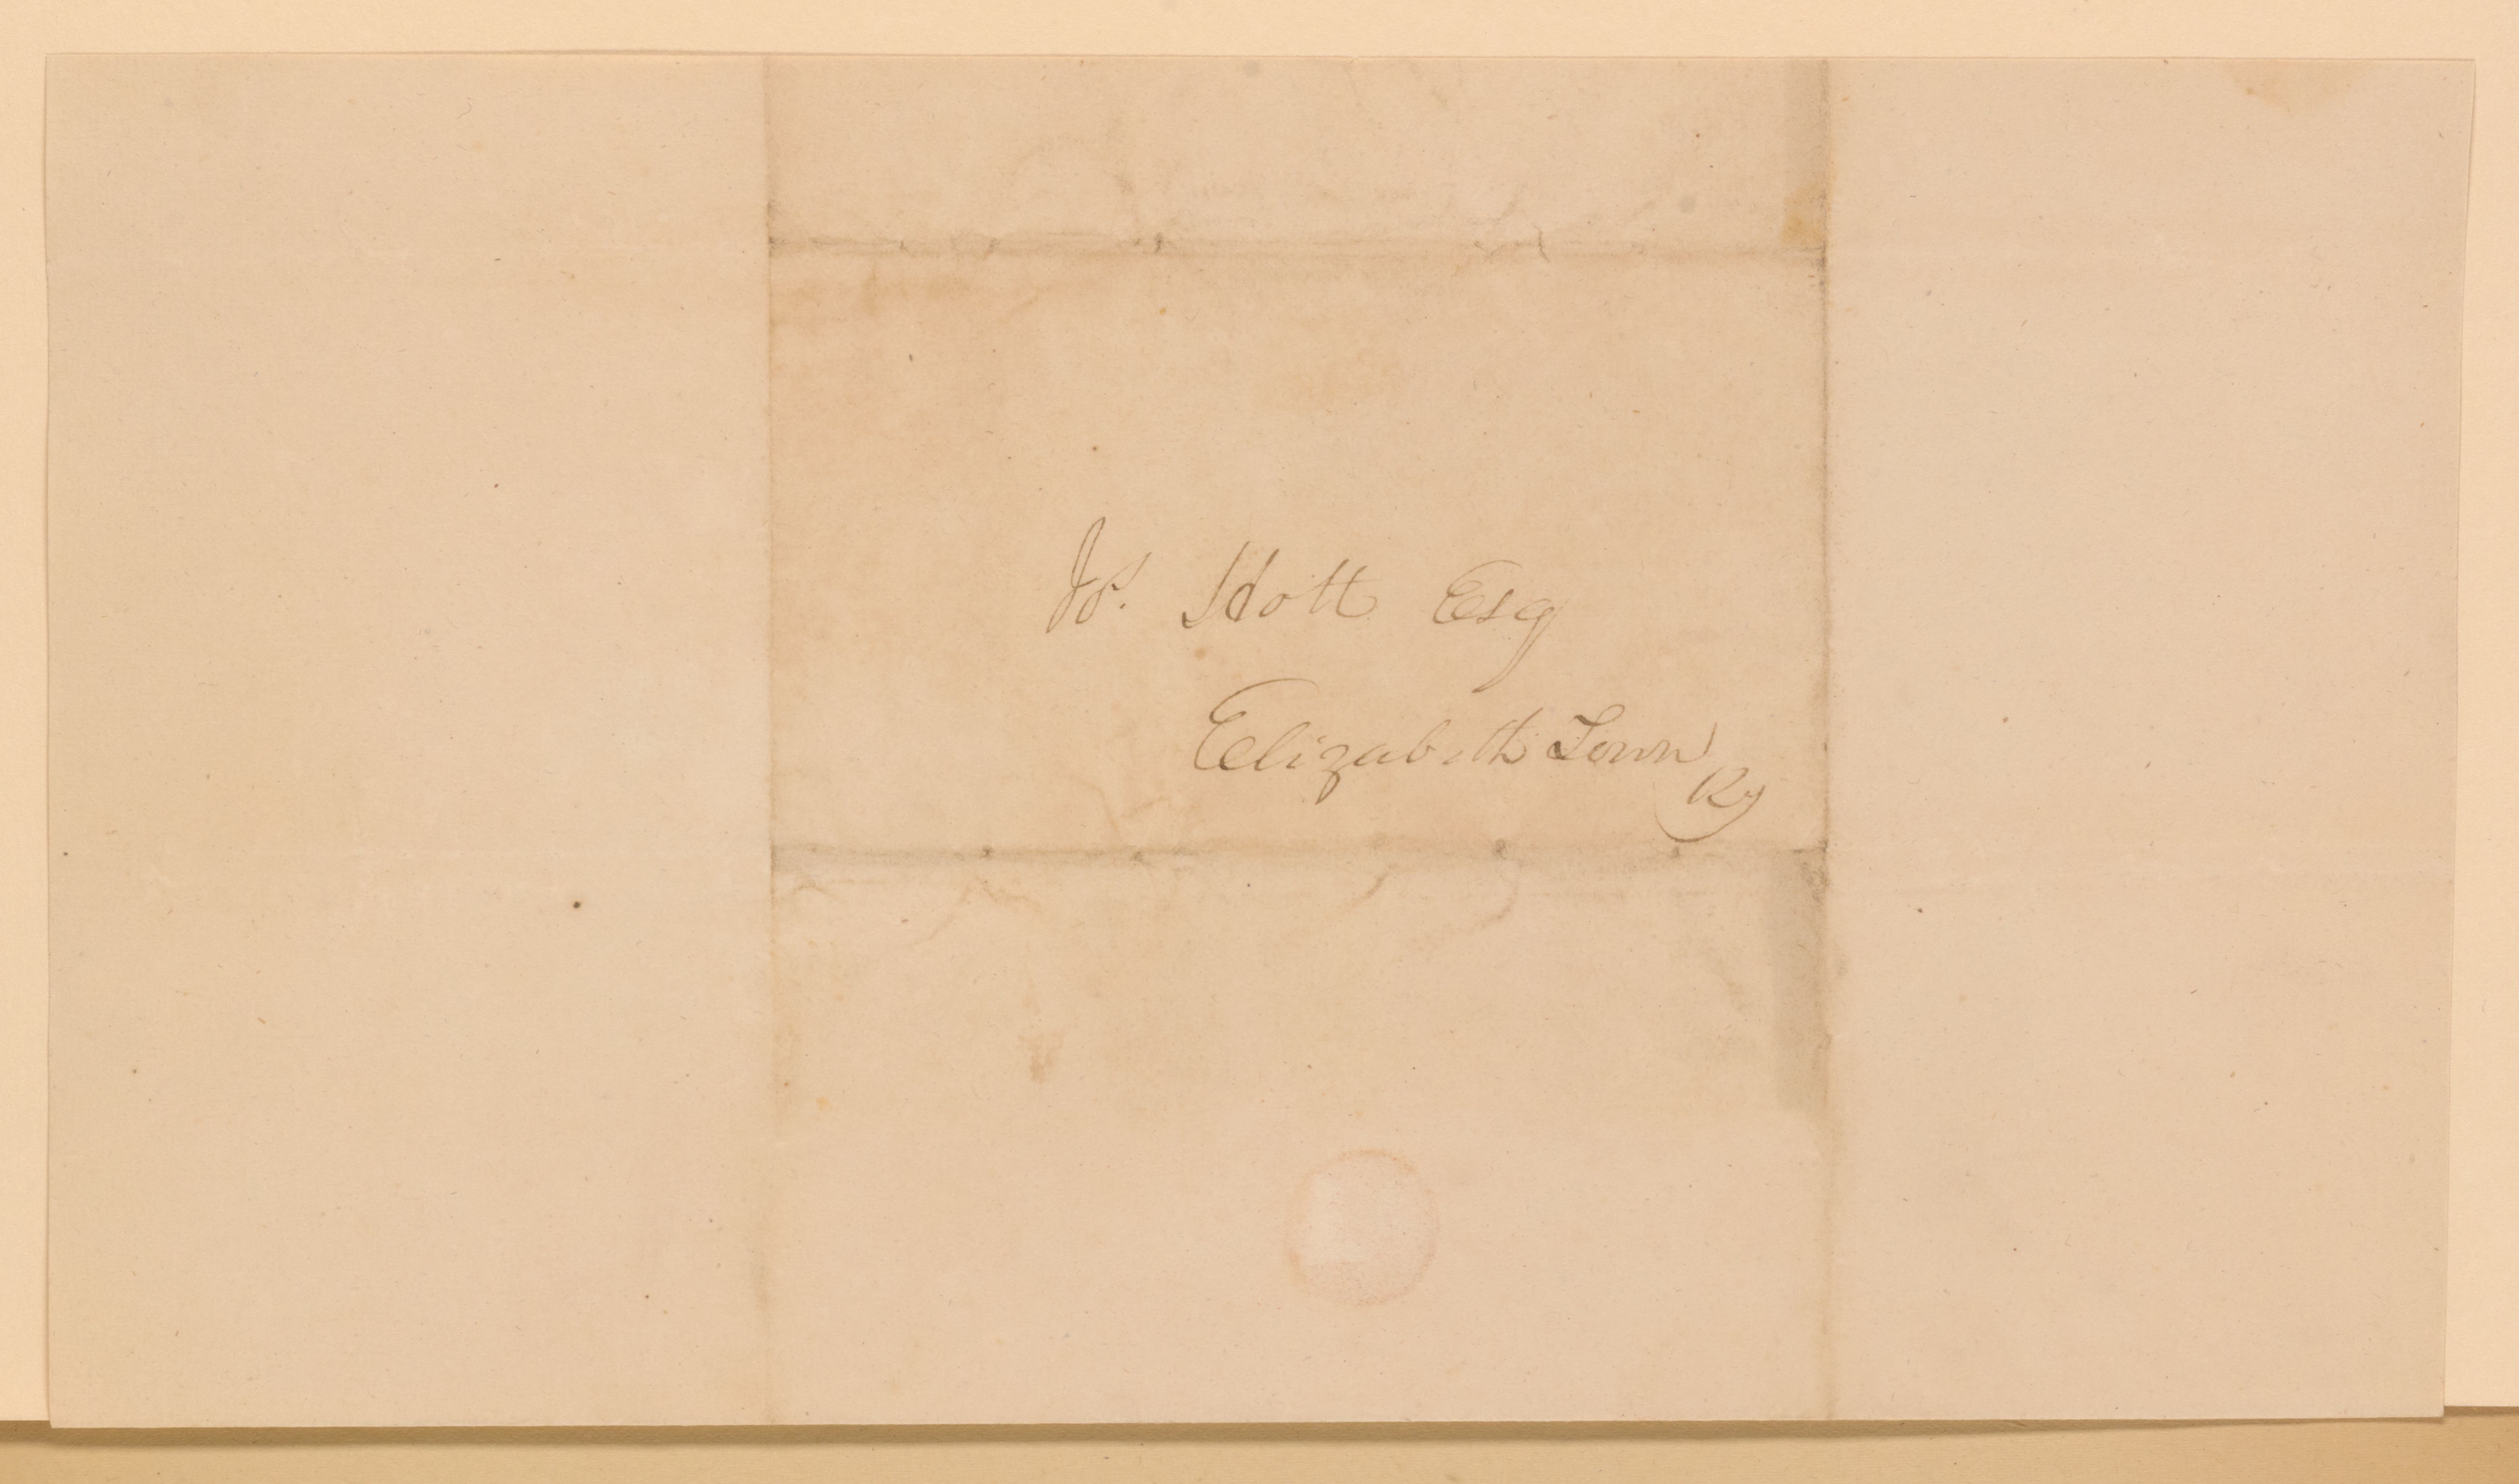 Js. Holt Esq
Elizabeth Town
Ky